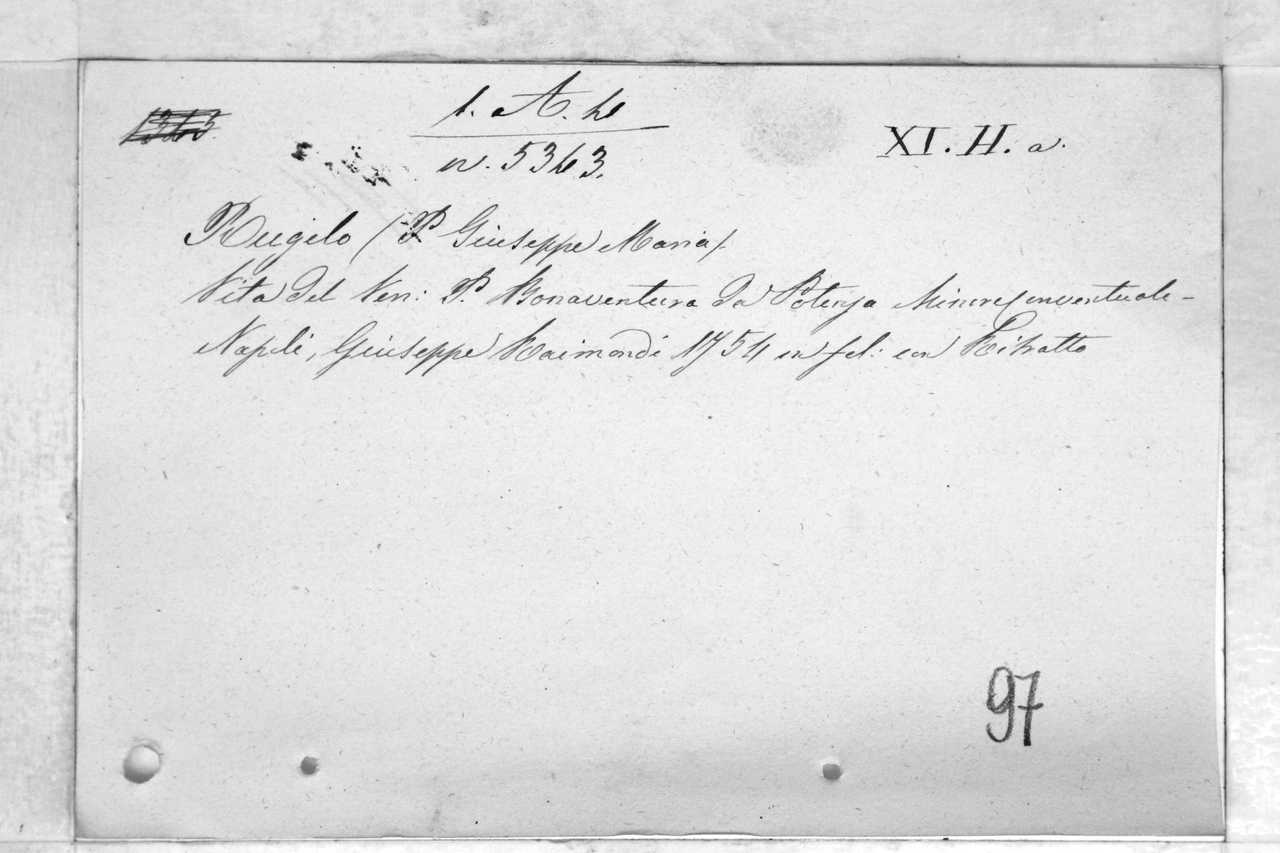 1. A. 4
n. 5343.
XI. H. a.
Rugilo (P. Giuseppe Maria)
Vita del Ven: P. Bonaventura da Potenza Minore Conventuale -
Napoli, Giuseppe Raimondi 1754 in fol: con Ritratto
97